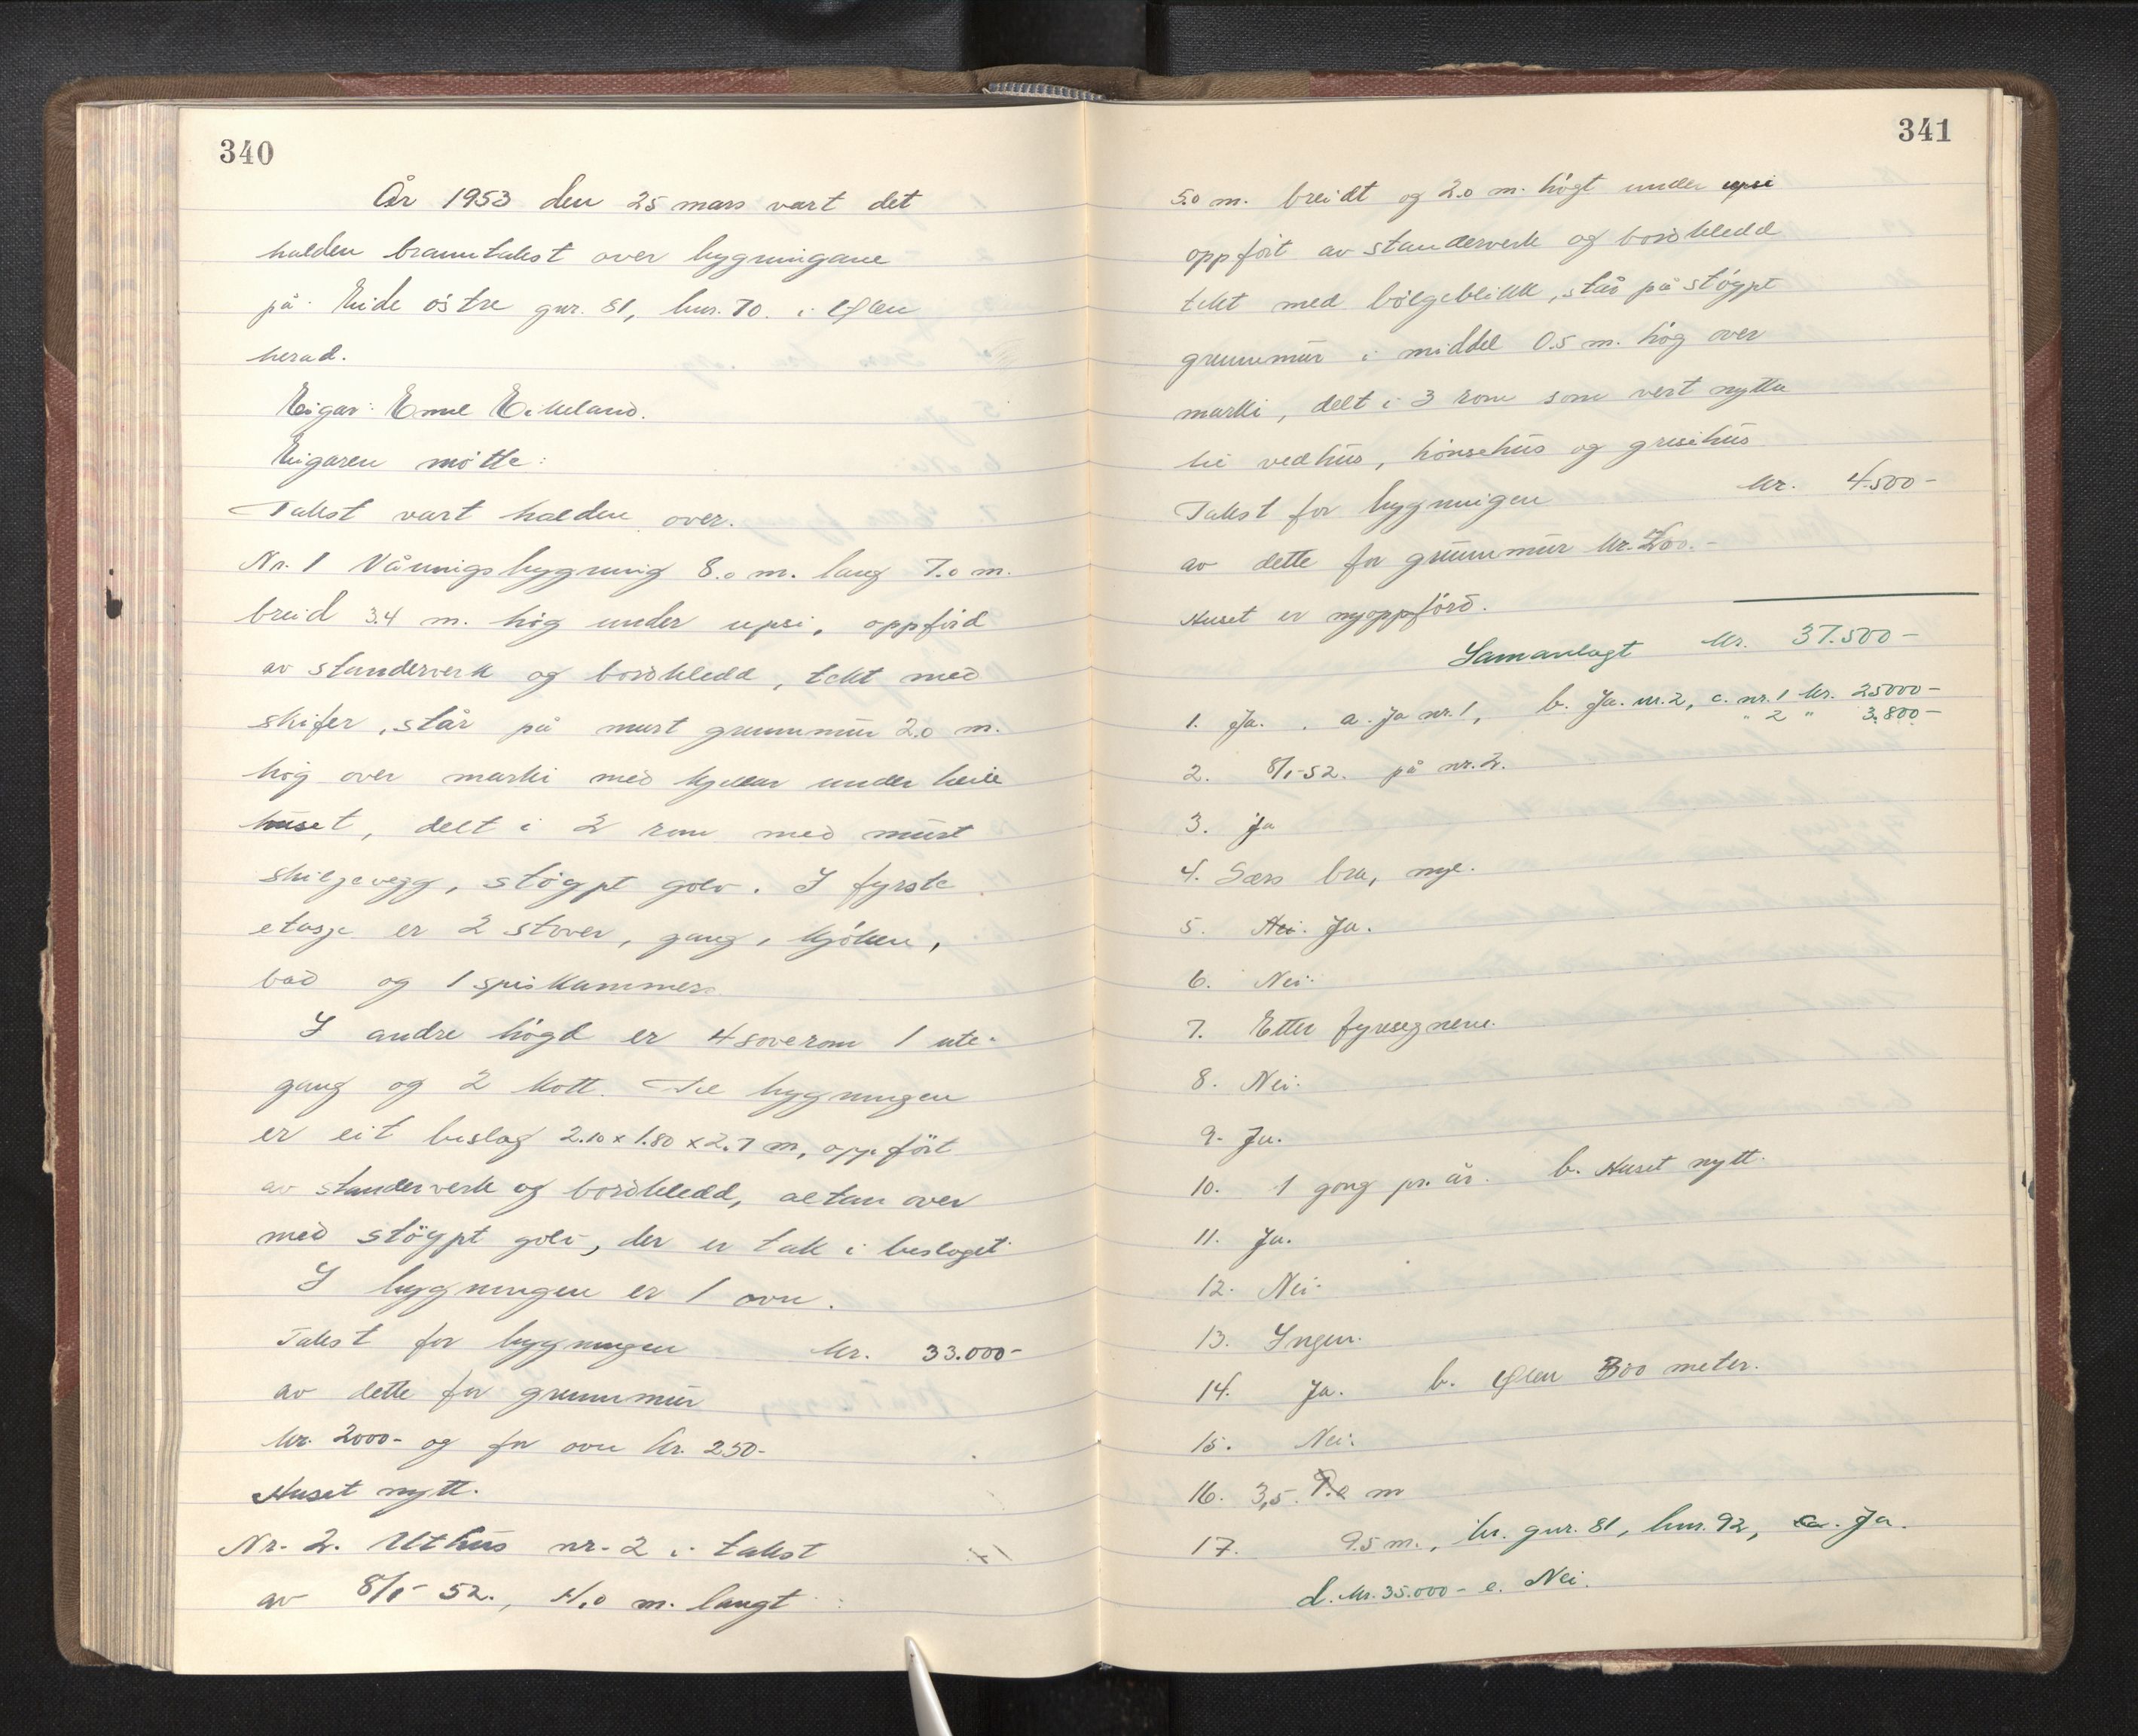 340
År 1953 den 25 mars vart det
halden branntakst over bygningane
på Eide östre gnr. 81, bnr. 70. i Ølen
herad.
Eigar: Emil Eikeland.
Eigaren mötte:
Takst vart halden over.
Nr. 1 Våningsbygning 8.0 m. lang 7.0 m.
breid 3.4 m. hög under upsi, oppförd
av standerverk og bordkledd, tekt med
skifer, står på murt grunnmur 2.0 m.
hög over marki med kjellar under heile
huset, delt i 2 rom med murt
skiljevegg, stöypt golv. I fyrste
etasje er 2 stover, gang, kjöken,
bad og 1 spiskammer.
I andre högd er 4 soverom 1 ute-
gang og 2 kott. Til bygningen
er eit bislag 2.10 x 1.80 x 2.7 m, oppfört
av standerverk og bordkledd, altan over
med stöypt golv, der er tak i bislaget
I bygningen er 1 ovn.
Takst for bygningen kr. 33.000-
av dette for grunnmur
kr. 2000- og for ovn kr. 250-
Huset nytt.
Nr. 2. Uthus nr. 2 i takst
av 8/1- 52., m. langt
341
5.0 m. breidt og 2.0 m. högt under upsi
oppfört av standerverk og bordkledd
tekt med bölgeblikk, står på stöypt
grunnmur i middel 0.5 m. hög over
marki, delt i 3 rom som vert nytta
til vedhus, hönsehus og grisehus
Takst for bygningen kr. 4500-
av dette for grunnmur kr. 200.-
Huset er nyoppförd.
Samanlagt kr. 37.500-
1. Ja. a. Ja nr. 1, b. Ja. nr. 2, c. nr. 1 kr. 25000-
" 2 " 3.800-
2. 8/1-52. på nr. 2.
3. Ja
4. Særs bra, nye.
5. Nei. Ja.
6. Nei.
7. Etter fyresegnene.
8. Nei.
9. Ja.
10. 1 gong pr. år. b. Huset nytt.
11. Ja.
12. Nei.
13. Ingen.
14. Ja. b. Ølen 300 meter.
15. Nei.
16. 3,5. m
17. 9.5 m., br. gnr. 81, bnr. 92, Ja.
d. kr. 35.000- e. Nei.